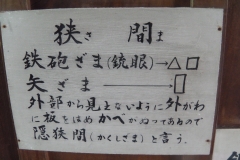 狭さ間ま
鉄砲ざま(銃眼)→△□
矢ざま→▯
外部から見えないように外がわ
に板をはめかべがぬってあるので
隠狭間(かくしざま)と言う。